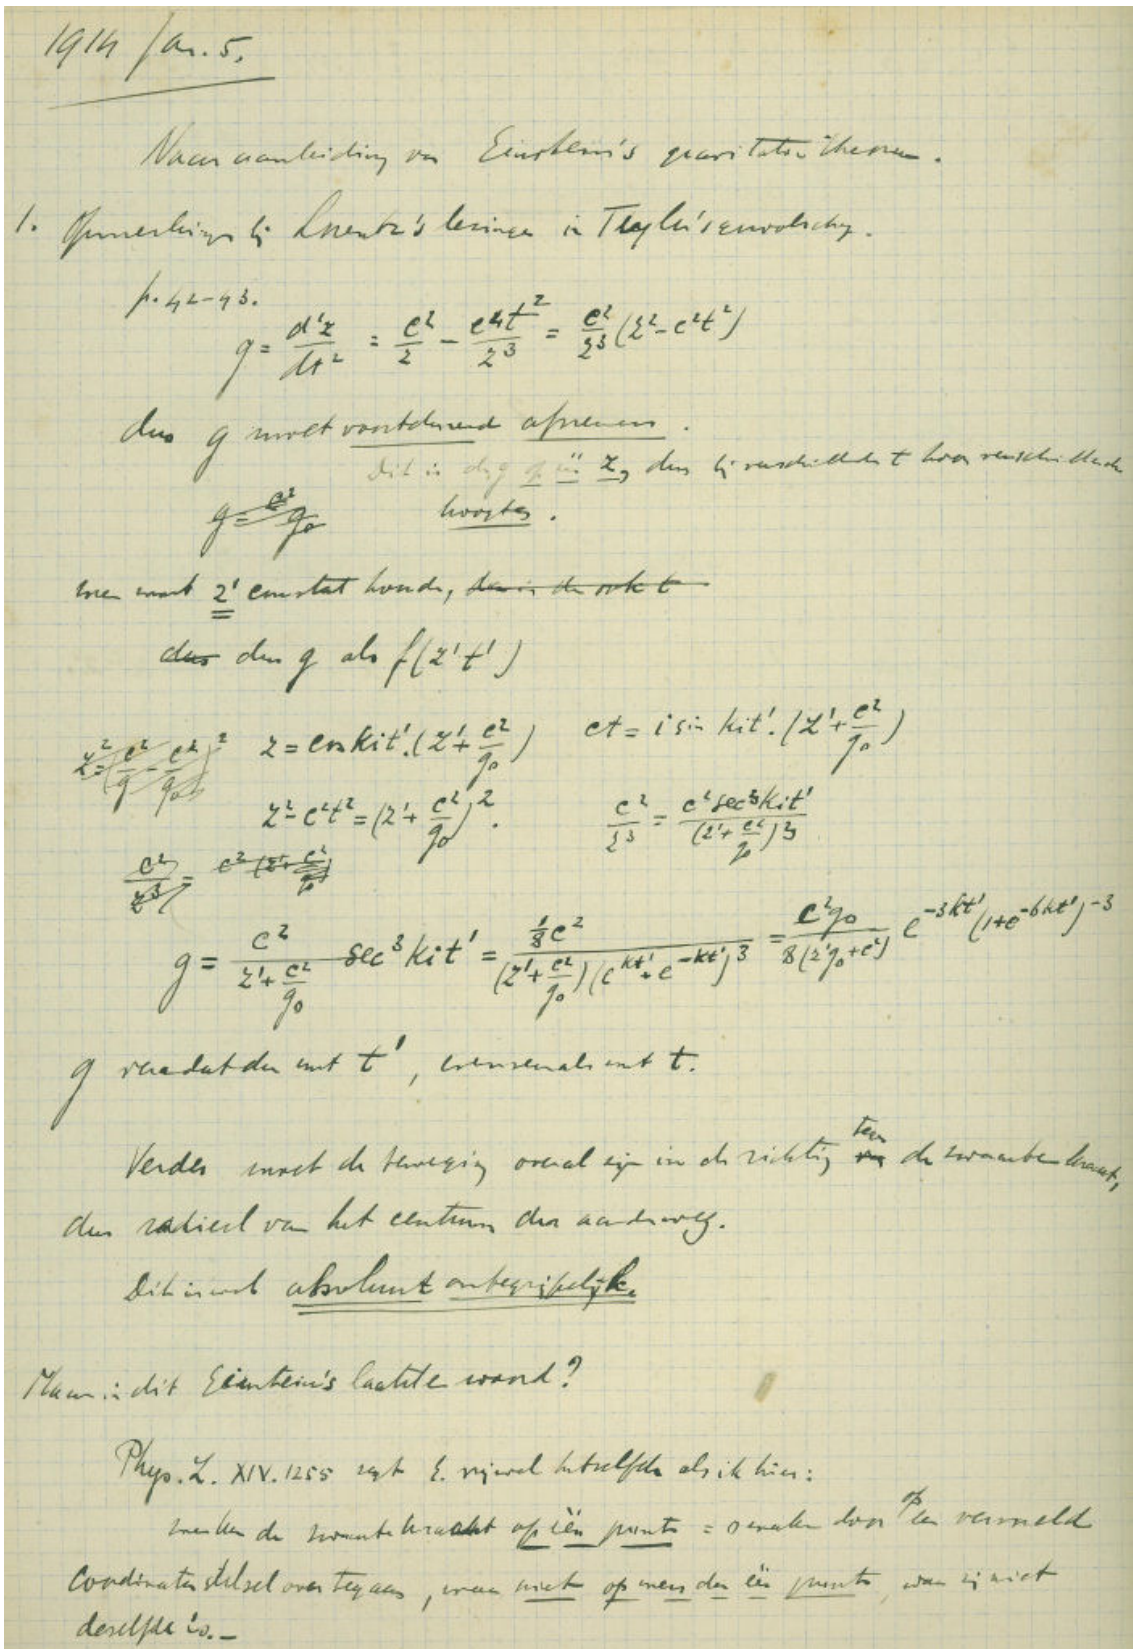 1914 Jan. 5.
Naar aanleiding van Einstein's gravitatie theorie.
1. Opmerkingen bij Lorentz's lezingen in Teyler's
p. 42-43.
g = d²z/dt² = c²/z − c⁴t²/z³ = c²/z³ (z² − c²t²)
dus g moet voortdurend afnemen.
Dit is de g op één z, dus bij verschillende t voor verschillende
g = c²/g₀ hoogten.
men moet z' constant houden, dan is dus ook t
dus dus g als f(z't')
z² = (c²/g − c²/g₀)² z = cos kit'.(z' + c²/g₀) ct = i sin kit'.(z' + c²/g₀)
z² − c²t² = (z' + c²/g₀)². c²/z³ = c² sec³ kit' / (z' + c²/g₀)³
c²/z³ = c² (z' + c²/g₀)
g = c²/(z' + c²/g₀) sec³ kit' = ⅛c² / (z' + c²/g₀)(e^kt' + e^−kt')³ = c²g₀ / 8(z'g₀ + c²) e^−3kt' (1 + e^−6kt')^−3
g verandert dus met t', evenzeer als met t.
Verder moet de beweging overal zijn in de richting van de zwaartekracht,
dus radieel van het centrum der aarde weg.
Dit is wel absoluut onbegrijpelijk.
Maar is dit Einstein's laatste woord?
Phys. Z. XIV. 1255 zegt E. vrijwel hetzelfde als ik hier:
men kan de zwaartekracht op één punt = 0 maken door op een versneld
Coordinatenstelsel over te gaan, maar niet op meer dan één punt, waar zij niet
dezelfde is.—